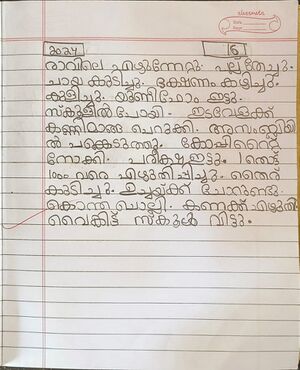 classmate
Date
Page
2024 16
രാവിലെ എഴുന്നേറ്റു. പല്ല് തേച്ചു.
ചായ കുടിച്ചു. ഭക്ഷണം കഴിച്ചു.
കുളിച്ചു. യൂണിഫോം ഇട്ടു.
സ്കൂളിൽ പോയി. ഇടവേളക്ക്
കണ്ണിമാങ്ങ പെറുക്കി. അസംബ്ലിയി
ൽ പങ്കെടുത്തു. കോപ്പിറൈറ്റ്
നോക്കി. പരീക്ഷ ഇട്ടു. 1തൊട്ട്
1000 വരെ എഴുതിപ്പിച്ചു. തൈര്
കുടിച്ചു. ഉച്ചയ്ക്ക് ചോറുണ്ടു.
കൊന്ത ചൊല്ലി. കണക്ക് എഴുതി.
വൈകിട്ട് സ്കൂൾ വിട്ടു.